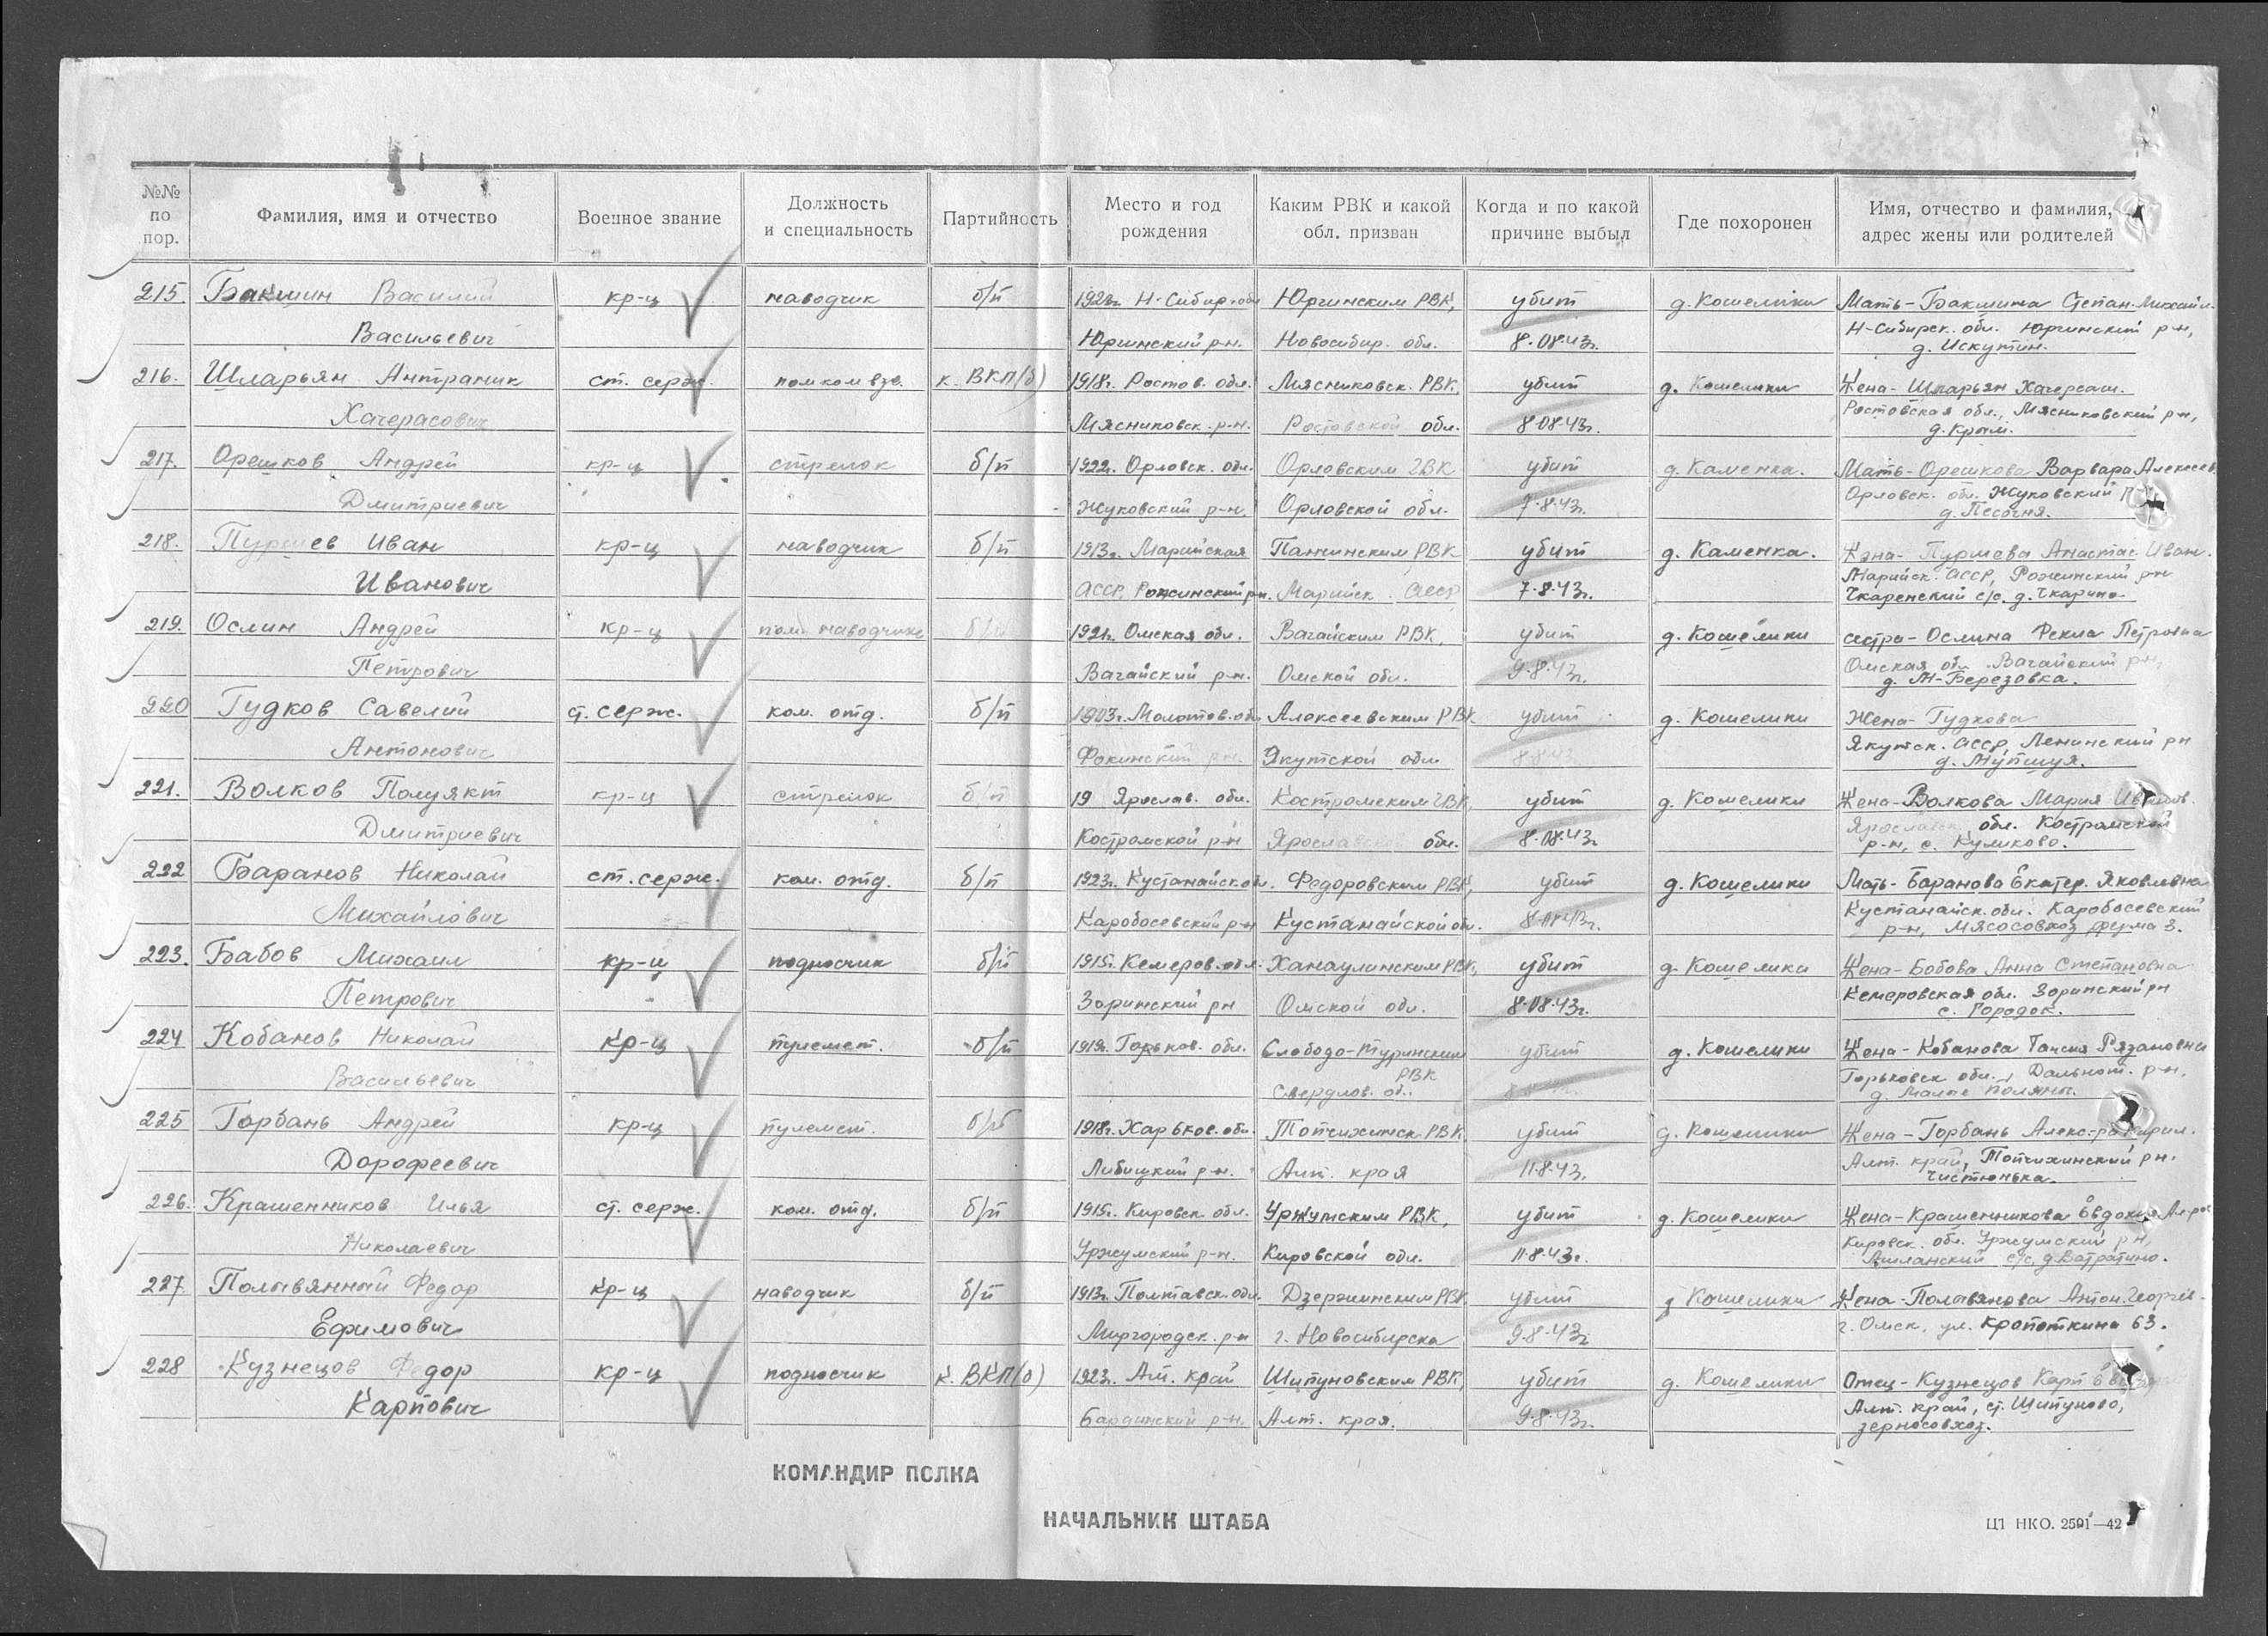 №№ по пор. Фамилия, имя и отчество Военное звание Должность и специальность Партийность Место и год рождения Каким РВК и какой обл. призван Когда и по какой причине выбыл Где похоронен Имя, отчество и фамилия, адрес жены или родителей
215. Бакшин Василий кр-ц наводчик б/п Н-Сибир. обл Юргинским РВК, убит д. Кошелики Мать-Бакшина Степан. Михайл.
Васильевич Юргинский р-н. Новосибир. обл. 8.08.43г. Н-Сибирск. обл. Юргинский р-н,
д. Искутин.
216. Шларьян Антраник ст. серж. помкомвзв. к. ВКП/б) 1918г. Ростов. обл. Мясниковск. РВК, убит д. Кошелики Жена-Шларьян
Хачерасович Мясниковск. р-н. Ростовской обл. 8.08.43г. Ростовская обл., Мясниковский р-н,
д. Крым.
217. Орешков Андрей кр-ц стрелок б/п 1922г. Орловск. обл. Орловским ГВК убит д. Каменка. Мать-Орешкова Варвара Алексеев.
Дмитриевич Жуковский р-н. Орловской обл. 7.8.43г. Орловск. обл. Жуковский
д. Песочня.
218. Иван кр-ц наводчик б/п 1913г. Марийская РВК убит д. Каменка. Жена- Анастас. Иван.
Иванович АССР, Ронжинский р-н. Марийск. АССР 7.8.43г. Марийск. АССР, р-н
Чкаренский с/с, д. Чкарино
219. Ослин Андрей кр-ц пом. наводчика б/п 1921г. Омская обл. Вагайским РВК, убит д. Кошелики сестра-Ослина Фекла Петровна
Петрович Вагайский р-н. Омской обл. 9.8.43г. Омская обл. Вагайский р-н,
д. М-Березовка.
220 Гудков Савелий ст. серж. ком. отд. б/п 1903г. Молотов. обл Алексеевским РВК убит д. Кошелики Жена-Гудкова
Антонович Фокинский р-н. Якутской обл. Якутск. АССР, Ленинский р-н
д. Мупшуя.
221. Волков Полуякт кр-ц стрелок б/п 19 Ярослав. обл. Костромским ГВК, убит д. Кошелики Жена-Волкова Мария
Дмитриевич Костромской р-н обл. 8.08.43г обл. Костромской
р-н, с. Куликово.
222 Баранов Николай ст. серж. ком. отд. б/п 1923г. Кустанайск обл. Федоровским РВК, убит д. Кошелики Мать-Баранова Екатер. Яковлевна
Михайлович Каробосевский р-н Кустанайской обл. 8.08.43г. Кустанайск. обл. Каробосевский
р-н, Мясосовхоз ферма 3.
223. Бабов Михаил кр-ц подносчик б/п 1915г. Кемеров. обл. Ханаулинским РВК, убит д. Кошелики Жена-Бобова Анна Степановна
Петрович Зоринский р-н Омской обл. 8.08.43г. Кемеровская обл. Зоринский р-н
с. Городок.
224 Кобанов Николай кр-ц пулемет. б/п 1919г. Горьков. обл. Слободо-Туринским убит д. Кошелики Жена-Кобанова Таисия Рязановна
Васильевич РВК Горьковск обл., р-н,
Свердлов. об. д. Малые Поляны.
225 Горбань Андрей кр-ц пулемет. б/п 1918г. Харьков. обл. Топчихинск. РВК убит д. Кошелики Жена-Горбань
Дорофеевич Либицкий р-н. Алт. края 11.8.43г. Алт. край, Топчихинский р-н.
Чистюнька.
226. Крашенников Илья ст. серж. ком. отд. б/п 1915г. Кировск. обл. Уржумским РВК, убит д. Кошелики Жена-Крашенникова Евдокия
Николаевич Уржумский р-н. Кировской обл. 11.8.43г. Кировск. обл. Уржумский р-н,
с/с,
227. Полывянный Федор кр-ц наводчик б/п 1913г. Полтавск. обл. Дзержинским РВК убит д. Кошелики Жена-Полывянова Антон. Георгев.
Ефимович Миргородск. р-н г. Новосибирска 9.8.43г. г. Омск, ул. Кропоткина 63.
228 Кузнецов Федор кр-ц подносчик к. ВКП/б) 1923г. Алт. край Шипуновским РВК, убит д. Кошелики Отец-Кузнецов Карп
Карпович р-н. Алт. края. 9.8.43г. Алт. край, ст. Шипуново,
зерносовхоз.
КОМАНДИР ПОЛКА
НАЧАЛЬНИК ШТАБА
ЦТ НКО. 2591—42